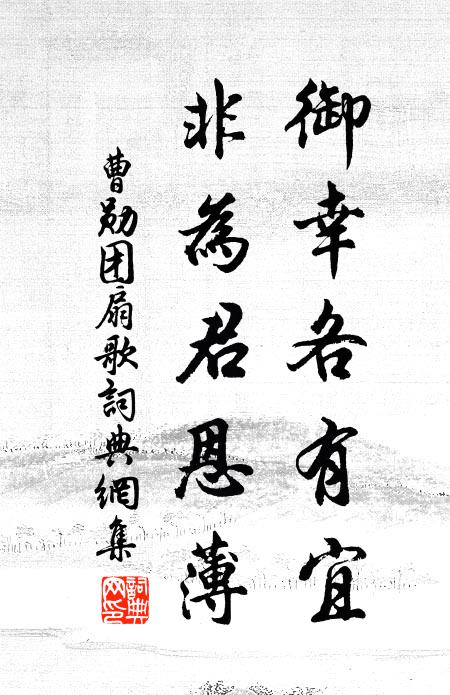 御幸各有宜
非為君恩薄
曹勛团扇歌詞典網集
詞典
网印